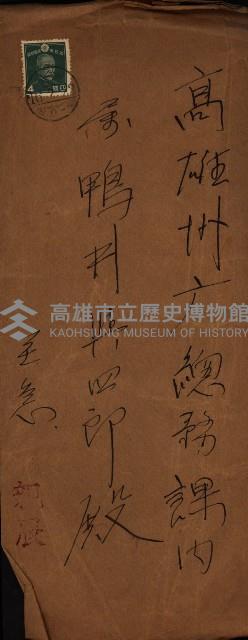 高雄州庁總務課内
属 鴨井 四郎殿
至急
高雄市立歷史博物館
KAOHSIUNG MUSEUM OF HISTORY